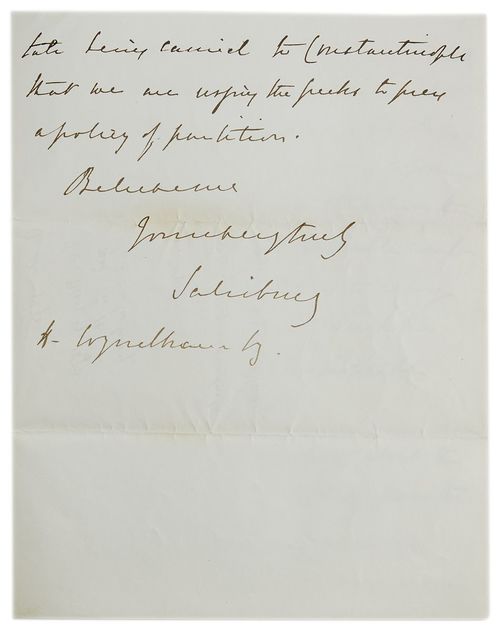 tale being carried to Constantinople
that we are urging the Greeks to press
a policy of partition.
Believe me
Yours very truly
Salisbury
H- Wyndham Esq.